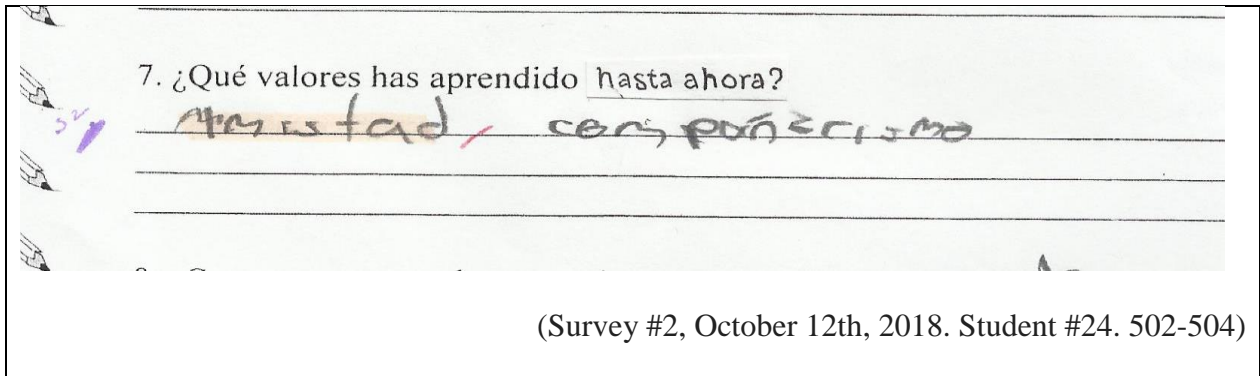 7. ¿Qué valores has aprendido hasta ahora?
Amistad, compañerismo
(Survey #2, October 12th, 2018. Student #24. 502-504)